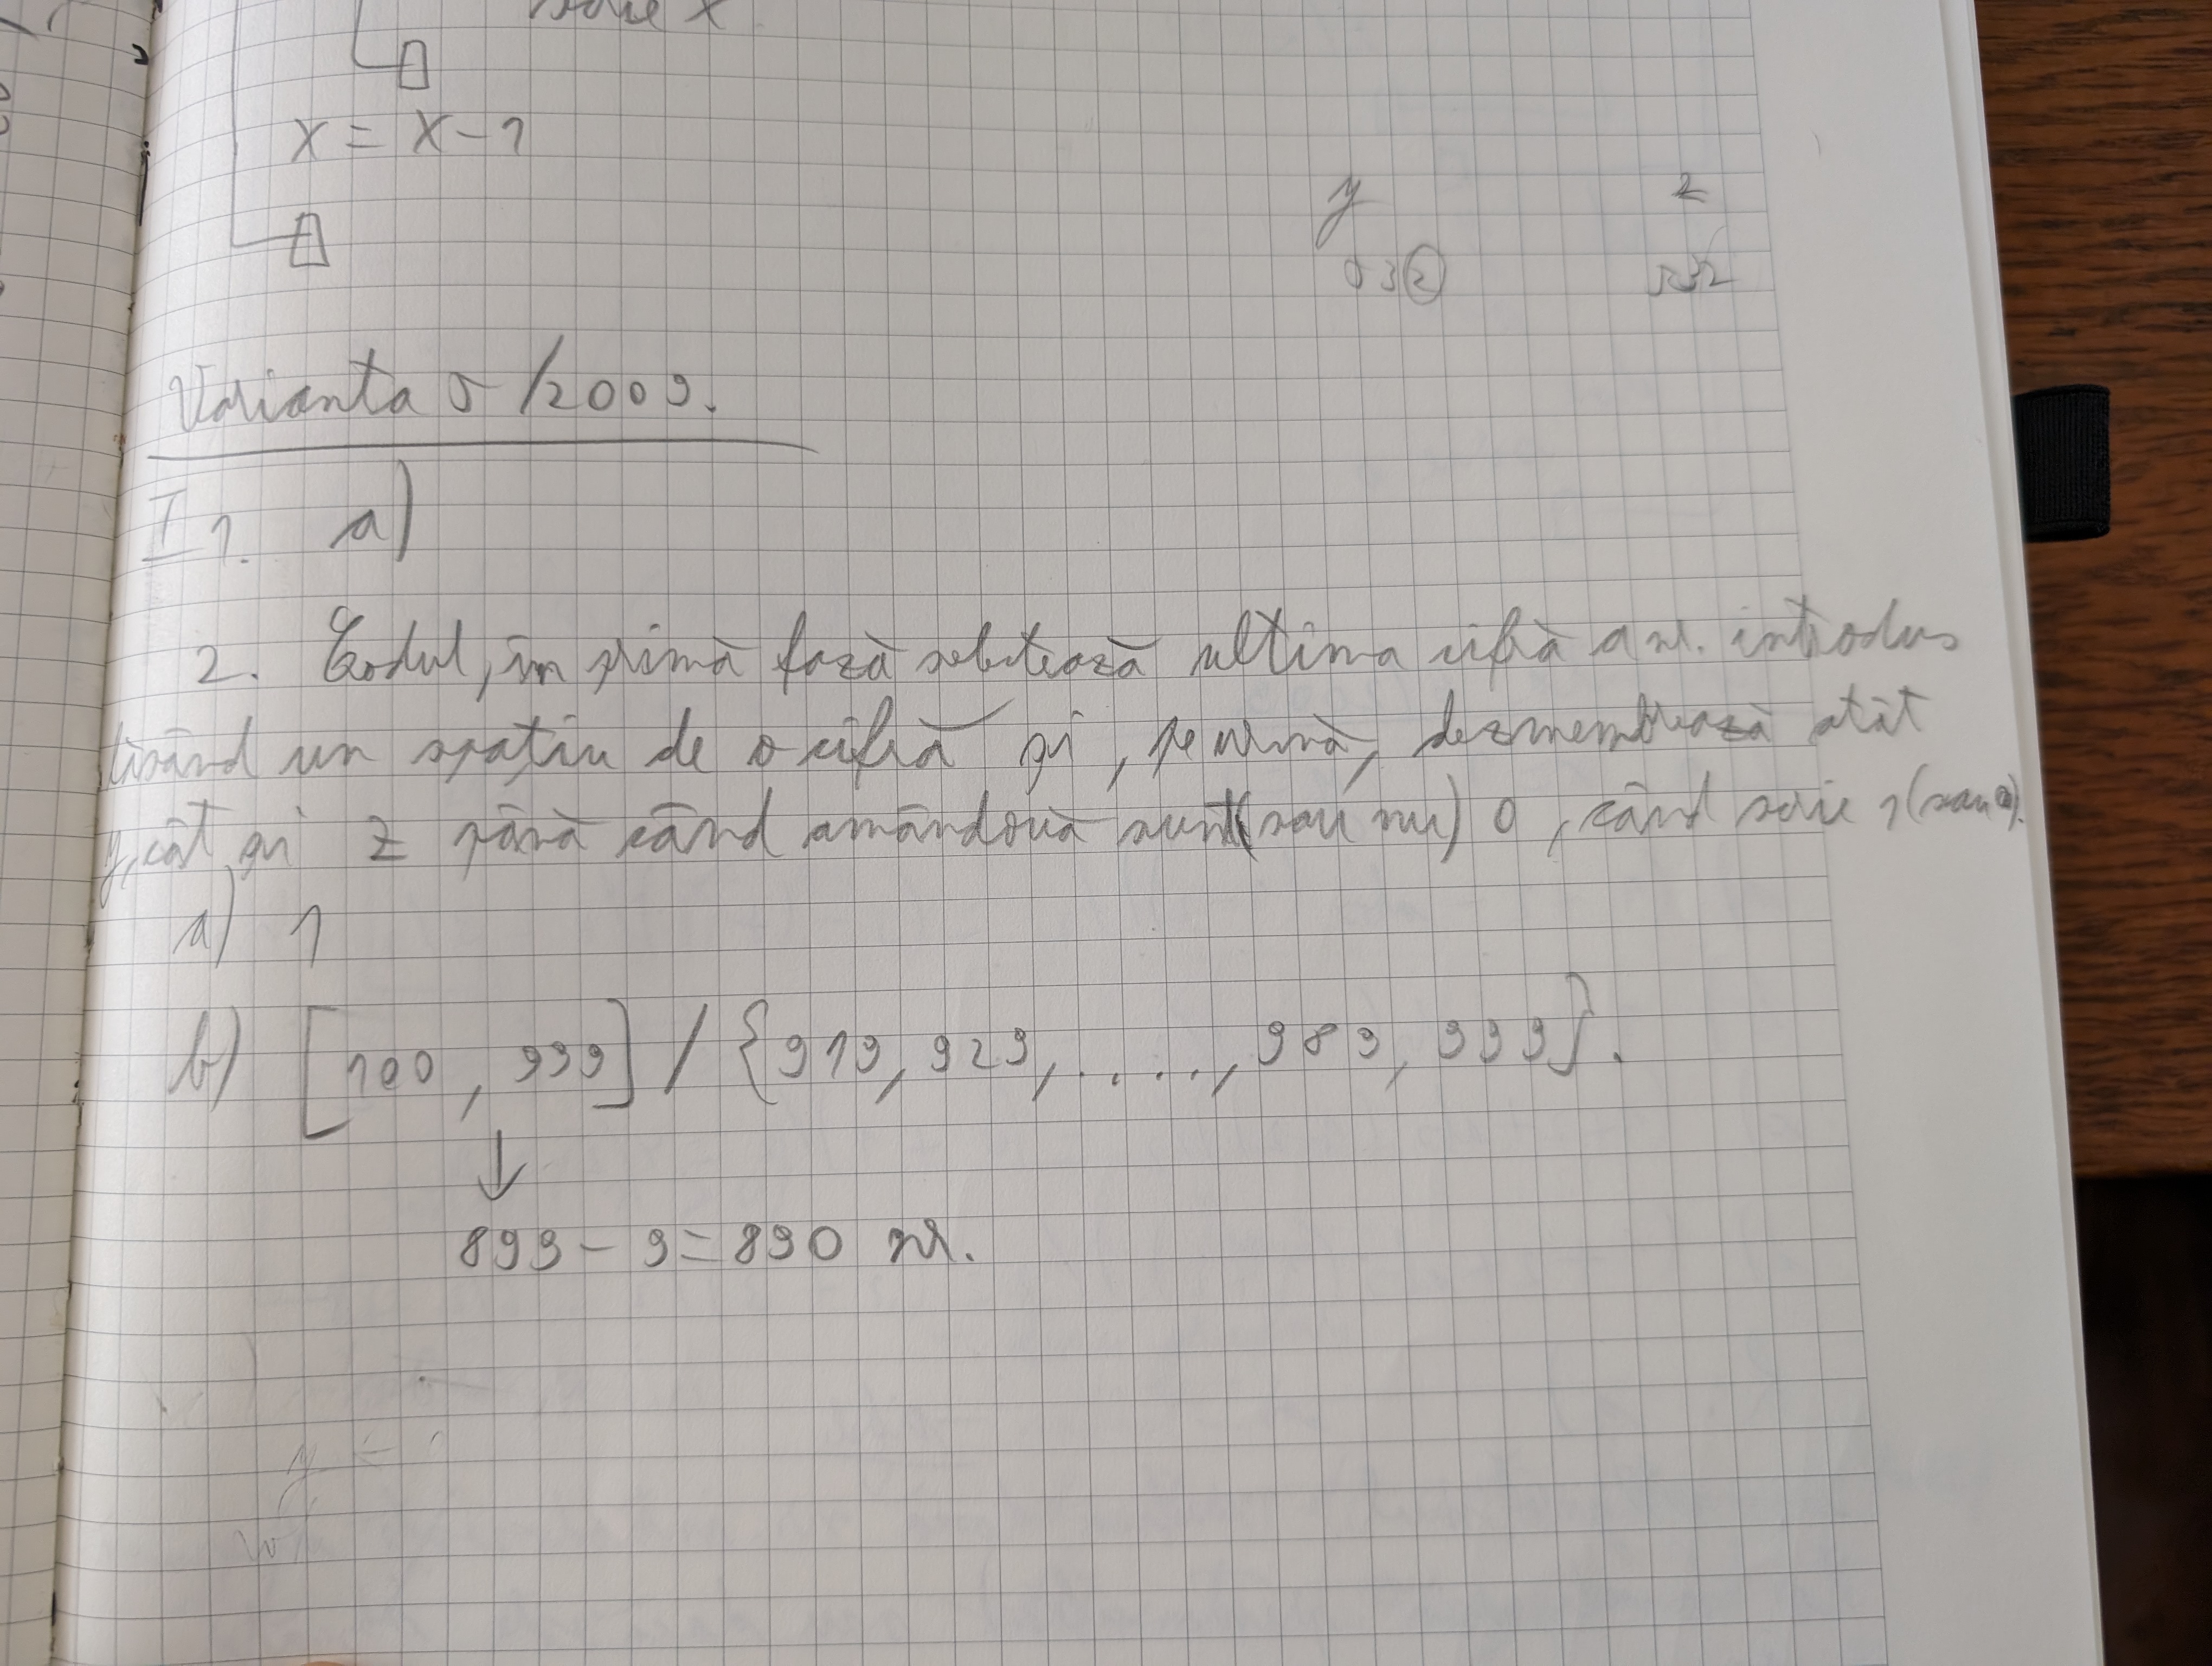 scrie x
x = x-1
y z
532 532
Varianta 5/2009.
I 1. a)
2. Codul, în primă fază selectează ultima cifră a nr. introdus
lăsând un spațiu de o cifră și, pe urmă, dezmembrează atât
y, cât și z până când amândouă sunt (sau nu) 0, când scrie 1(sau 0).
a) 1
b) [100, 999] / {919, 929, ...., 989, 999}.
↓
899 - 9 = 890 nr.
y ←